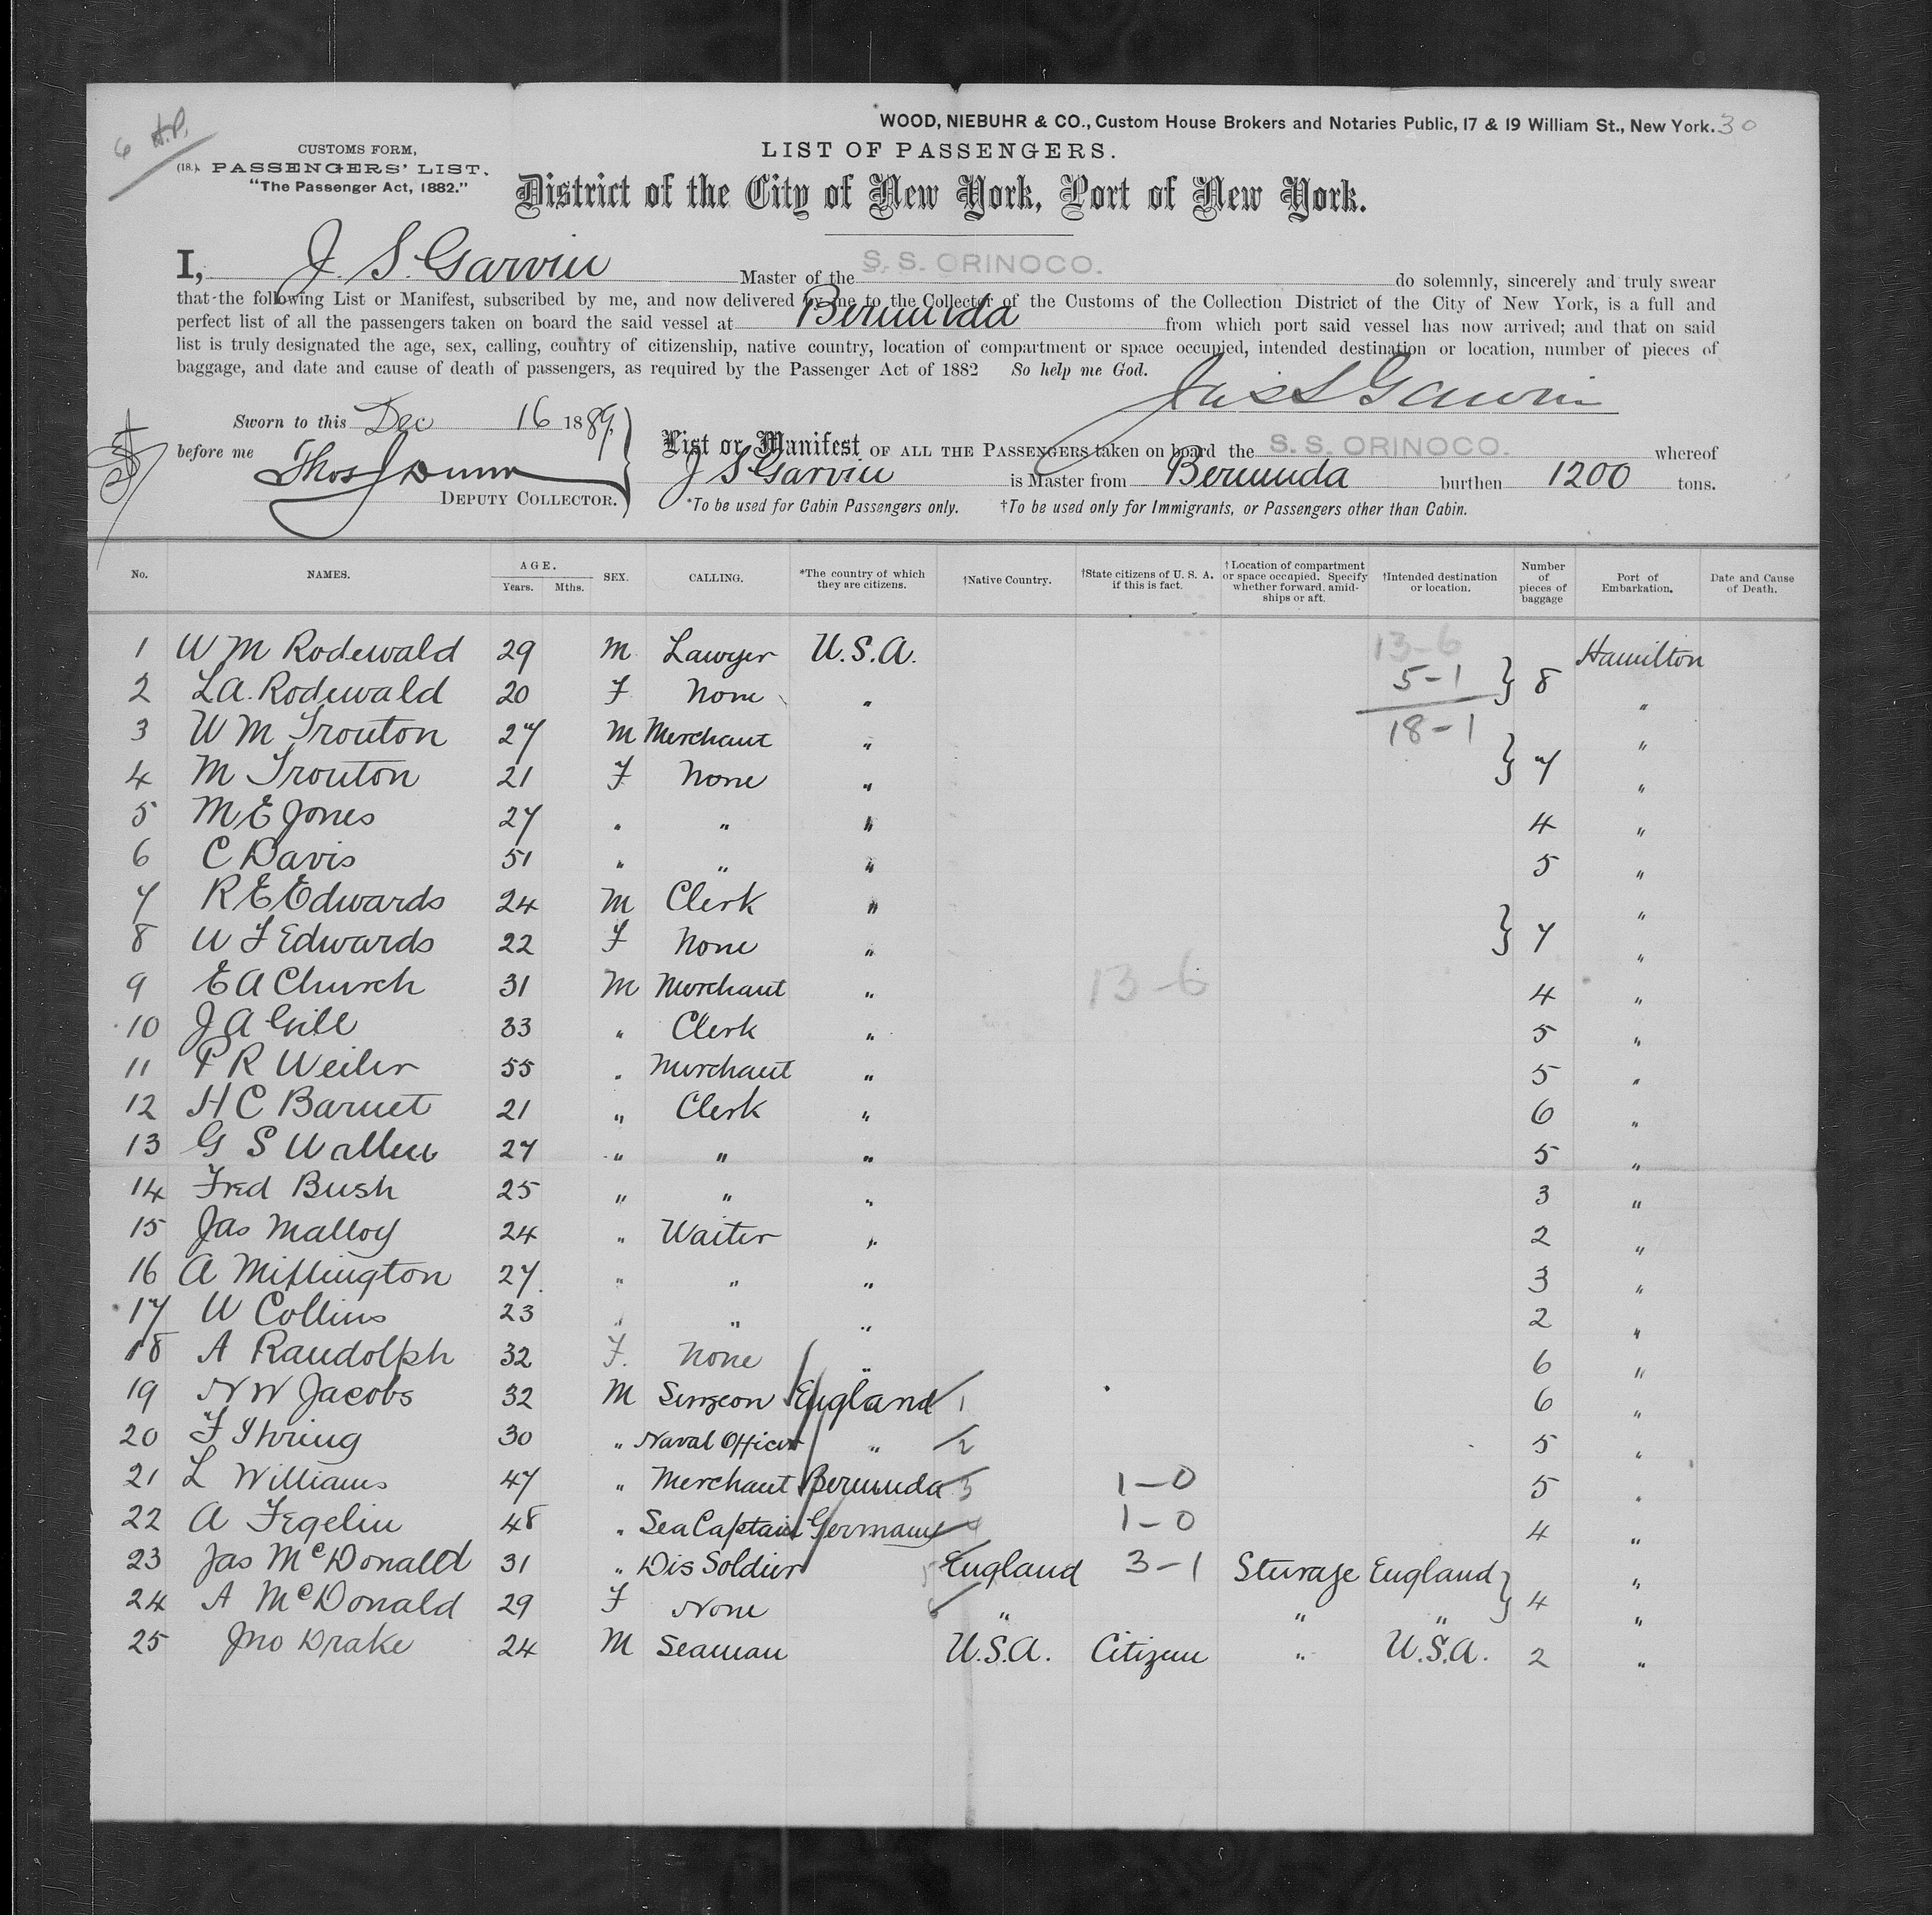 6 A.P.
WOOD, NIEBUHR & CO., Custom House Brokers and Notaries Public, 17 & 19 William St., New York. 30
CUSTOMS FORM,
(18.) PASSENGERS' LIST.
"The Passenger Act, 1882."
LIST OF PASSENGERS.
District of the City of New York, Port of New York.
I, J. S. Garvin Master of the S. S. ORINOCO. do solemnly, sincerely and truly swear
that the following List or Manifest, subscribed by me, and now delivered by me to the Collector of the Customs of the Collection District of the City of New York, is a full and
perfect list of all the passengers taken on board the said vessel at Bermuda from which port said vessel has now arrived; and that on said
list is truly designated the age, sex, calling, country of citizenship, native country, location of compartment or space occupied, intended destination or location, number of pieces of
baggage, and date and cause of death of passengers, as required by the Passenger Act of 1882 So help me God.
Jas S Garvin
Sworn to this Dec 16 1889,
before me Thos J Dunn
DEPUTY COLLECTOR.
List or Manifest OF ALL THE PASSENGERS taken on board the S. S. ORINOCO. whereof
J S Garvin is Master from Bermuda burthen 1200 tons.
*To be used for Cabin Passengers only. †To be used only for Immigrants, or Passengers other than Cabin.
No. NAMES. AGE. Years. Mths. SEX. CALLING. *The country of which they are citizens. †Native Country. †State citizens of U. S. A. if this is fact. †Location of compartment or space occupied. Specify whether forward, amidships or aft. †Intended destination or location. Number of pieces of baggage Port of Embarkation. Date and Cause of Death.
1 W M Rodewald 29 M Lawyer U.S.A. 13-6 Hamilton
2 L A. Rodewald 20 F None " 5-1 } 8 "
3 W M Trouton 27 M Merchant " 18-1 "
4 M Trouton 21 F None " } 7 "
5 M E Jones 27 " " " 4 "
6 C Davis 51 " " " 5 "
7 R E Edwards 24 M Clerk " "
8 W F Edwards 22 F None " } 7 "
9 E A Church 31 M Merchant " 13-6 4 "
10 J A Gill 33 " Clerk " 5 "
11 P R Weiler 55 " Merchant " 5 "
12 H C Barnet 21 " Clerk " 6 "
13 G S Wallen 27 " " " 5 "
14 Fred Bush 25 " " " 3 "
15 Jas Malloy 24 " Waiter " 2 "
16 A Millington 27 " " " 3 "
17 W Collins 23 " " " 2 "
18 A Randolph 32 F. None " 6 "
19 N W Jacobs 32 M Surgeon England 1 6 "
20 F Thring 30 " Naval Officer " 2 5 "
21 L Williams 47 " Merchant Bermuda 3 1-0 5 "
22 A Fegelin 48 " Sea Captain Germany 4 1-0 4 "
23 Jas McDonald 31 " Dis Soldier 5 England 3-1 Sterage England "
24 A McDonald 29 F None 6 " " " } 4 "
25 Jno Drake 24 M Seaman U.S.A. Citizen " U.S.A. 2 "